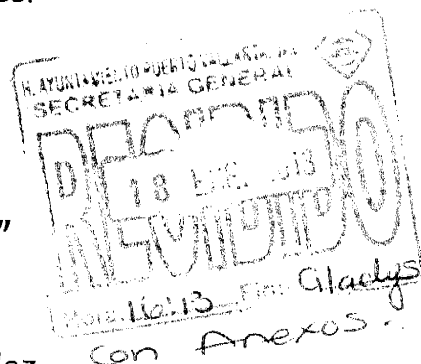 H. AYUNTAMIENTO PUERTO VALLARTA, JAL.
SECRETARIA GENERAL
RECIBIDO
18 ENE. 2013
"
Hora: 16:13 Gladys
con Anexos.